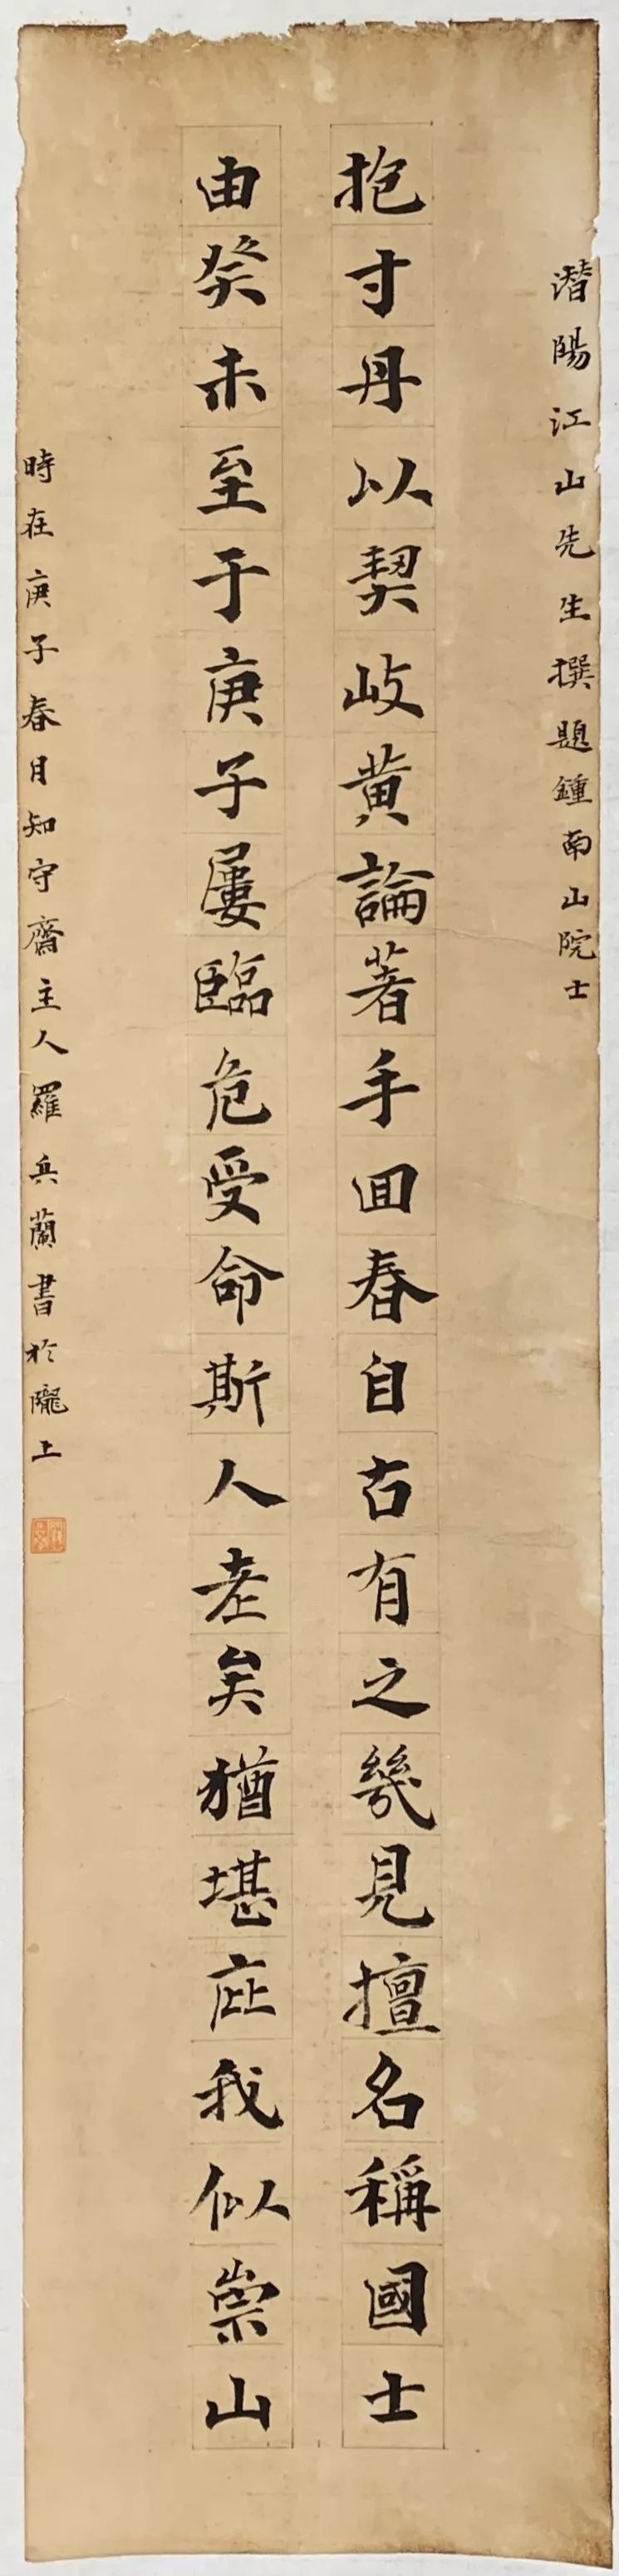 潛陽江山先生撰題鍾南山院士
抱寸丹以契岐黃論著手回春自古有之幾見擅名稱國士
由癸未至于庚子屢臨危受命斯人老矣猶堪庇我似崇山
時在庚子春月知守齋主人羅兵蘭書於隴上